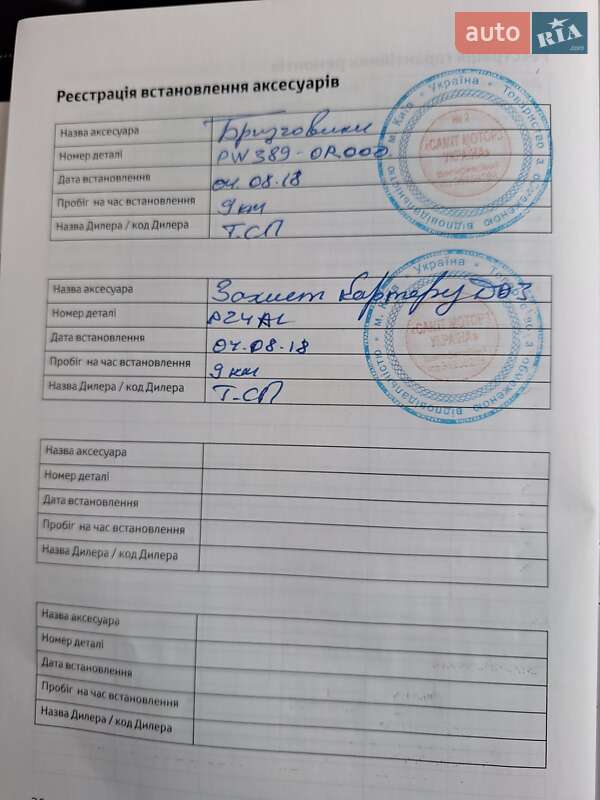 auto RIA.com
Реєстрація встановлення аксесуарів
Назва аксесуара Бризговики
Номер деталі PW389-0R000
Дата встановлення 04.08.18
Пробіг на час встановлення 9 км
Назва Дилера / код Дилера Т.СП
Україна * Товариство з обмеженою відповідальністю * м. Київ *
№ 2
«САМІТ МОТОРЗ
УКРАЇНА»
Назва аксесуара Захист картеру ДВЗ
Номер деталі P24AL
Дата встановлення 04.08.18
Пробіг на час встановлення 9 км
Назва Дилера / код Дилера Т.СП
Україна * Товариство з обмеженою відповідальністю * м. Київ *
«САМІТ МОТОРЗ
УКРАЇНА»
Назва аксесуара
Номер деталі
Дата встановлення
Пробіг на час встановлення
Назва Дилера / код Дилера
Назва аксесуара
Номер деталі
Дата встановлення
Пробіг на час встановлення
Назва Дилера / код Дилера